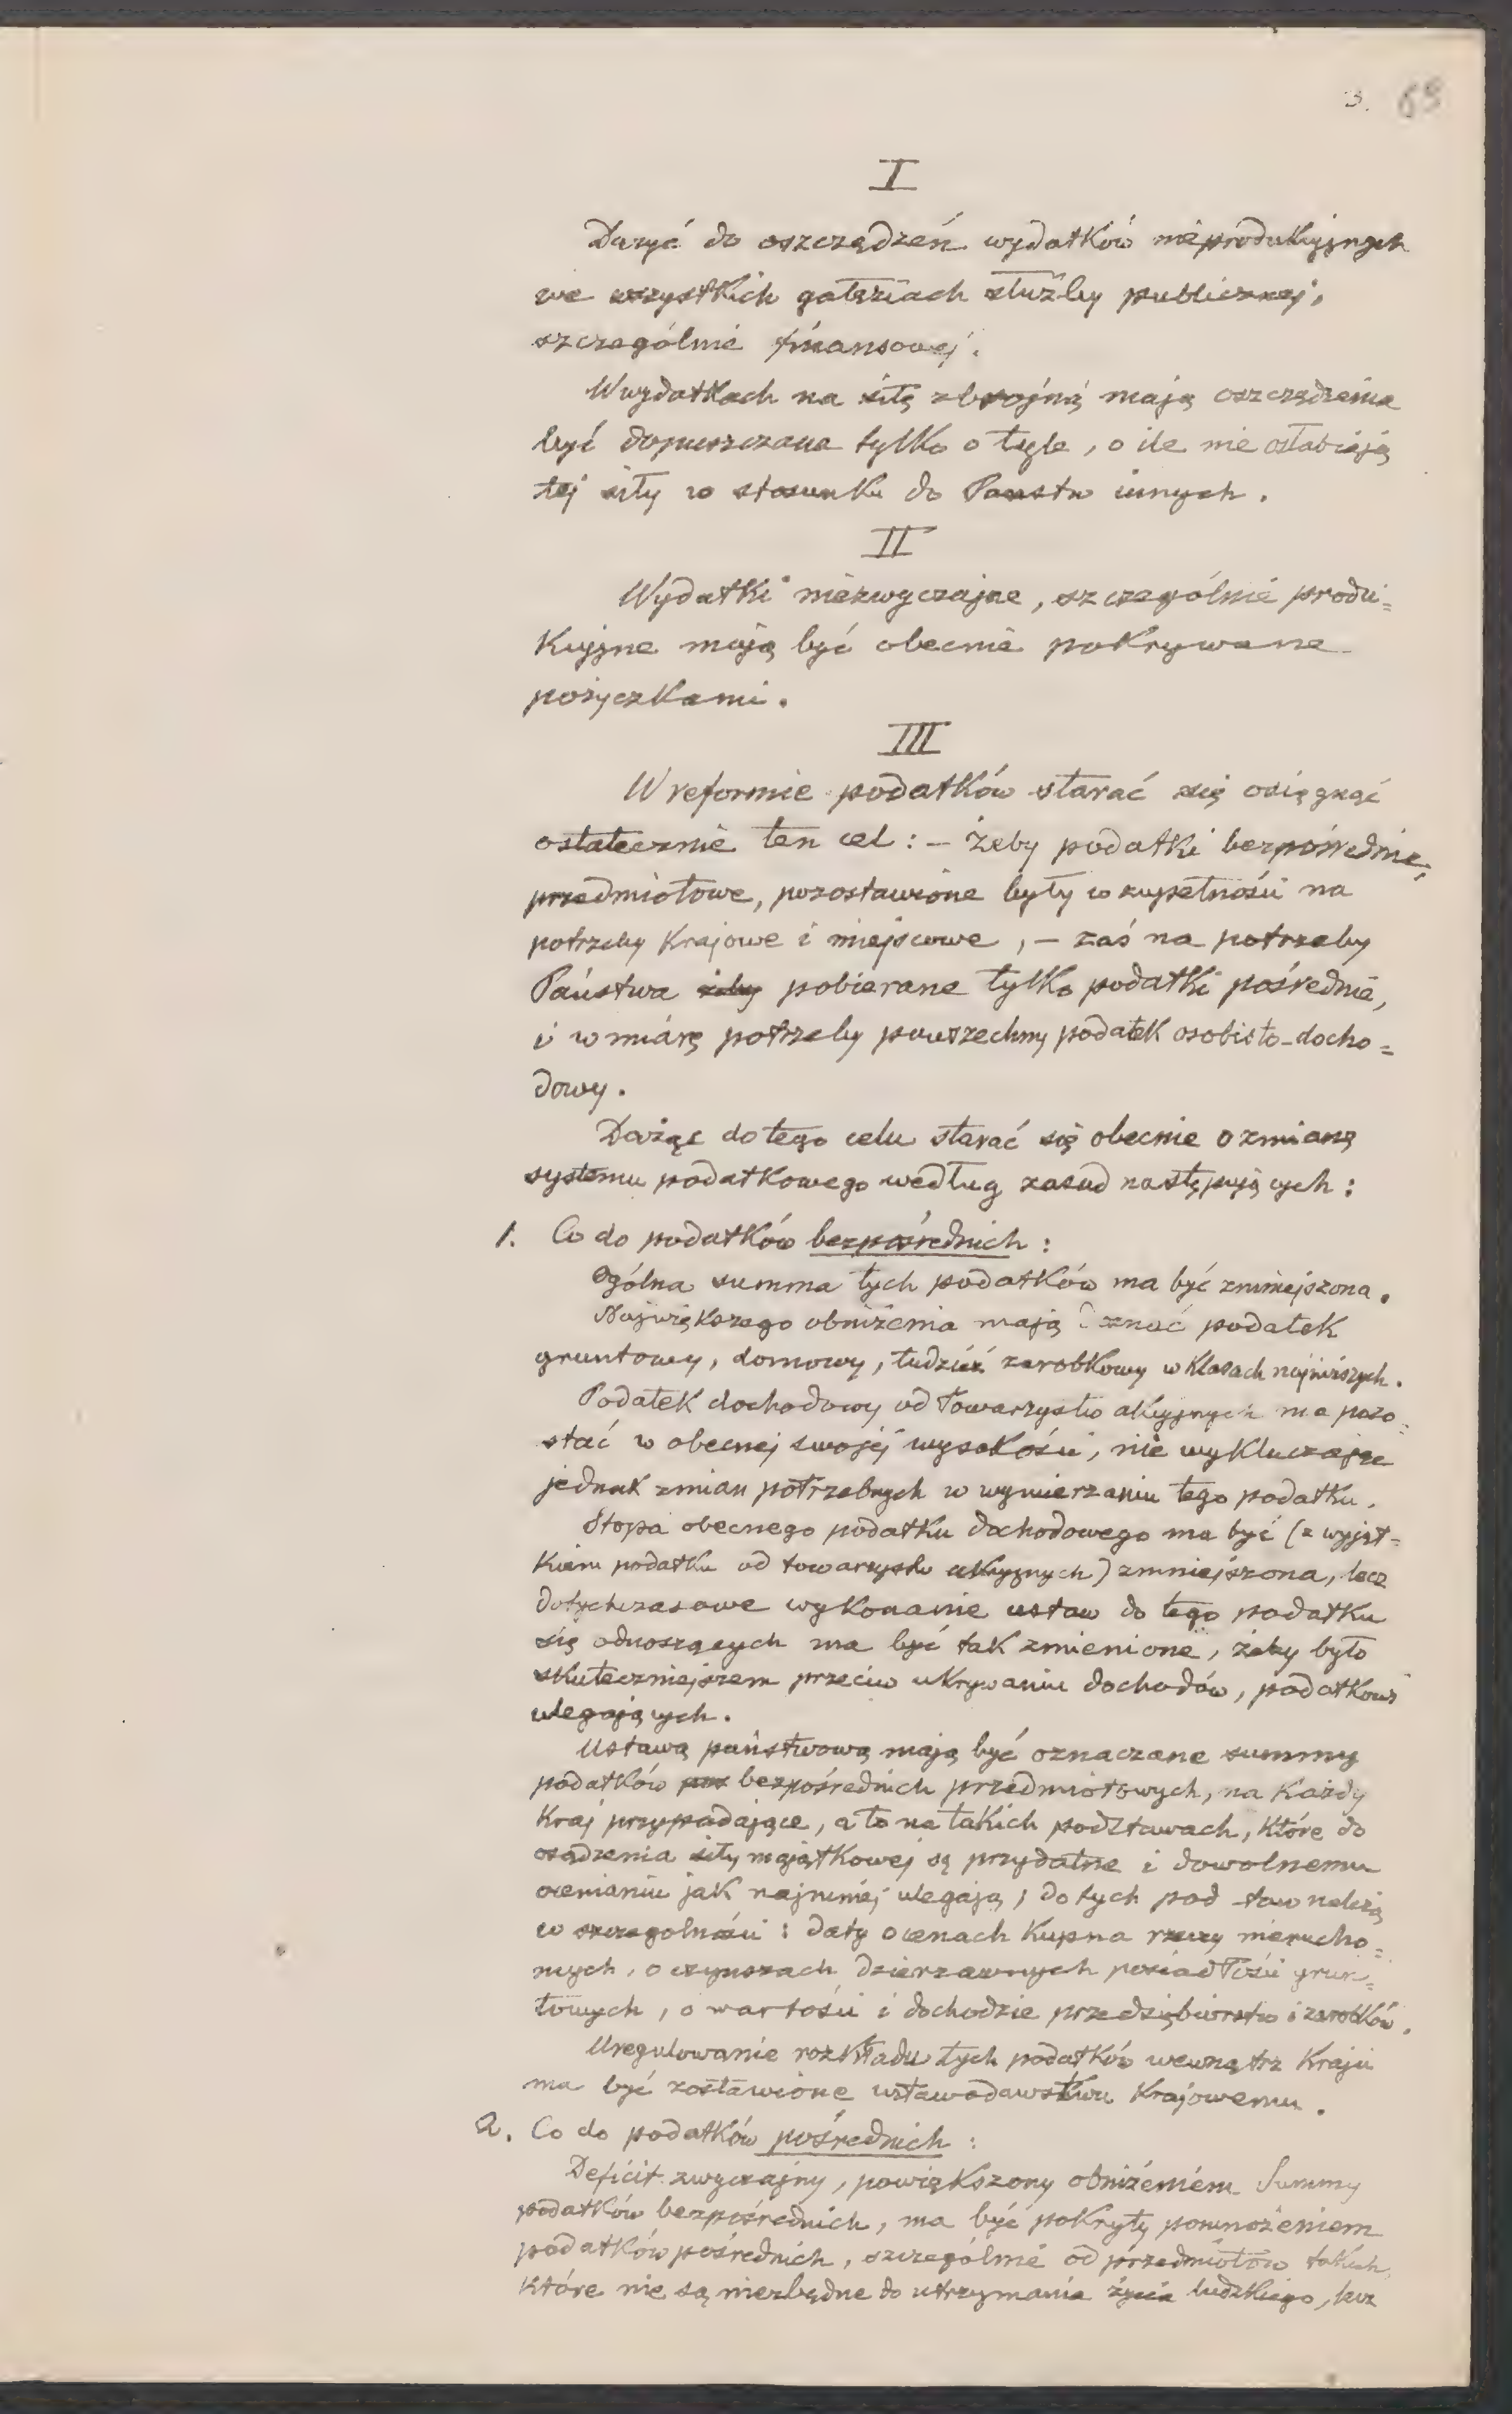 3. 69
I
Dążyć do oszczędzeń wydatków nieprodukcyjnych
we wszystkich gałęziach służby publicznej,
szczególnie finansowej.
W wydatkach na siłę zbrojną mają oszczędzenia
być dopuszczane tylko o tyle, o ile nie osłabiają
tej siły w stosunku do Państw innych.
II
Wydatki niezwyczajne, szczególnie produ=
kcyjne mają być obecnie pokrywane
pożyczkami.
III
W reformie podatków starać się osięgnąć
ostatecznie ten cel: – żeby podatki bezpośrednie,
przedmiotowe, pozostawione były w zupełności na
potrzeby krajowe i miejscowe, – zaś na potrzeby
Państwa żeby pobierane tylko podatki pośrednie,
i w miarę potrzeby powszechny podatek osobisto-docho=
dowy.
Dążąc do tego celu starać się obecnie o zmianę
systemu podatkowego według zasad następujących:
1. Co do podatków bezpośrednich:
Ogólna summa tych podatków ma być zmniejszona.
Największego obniżenia mają doznać podatek
gruntowy, domowy, tudzież zarobkowy w klasach najniższych.
Podatek dochodowy od Towarzystw akcyjnych ma pozo=
stać w obecnej swojej wysokości, nie wykluczając
jednak zmian potrzebnych w wymierzaniu tego podatku.
Stopa obecnego podatku dochodowego ma być (z wyjąt=
kiem podatku od towarzystw akcyjnych) zmniejszona, lecz
dotychczasowe wykonanie ustaw do tego podatku
się odnoszących ma być tak zmienione, żeby było
skuteczniejszem przeciw ukrywaniu dochodów, podatkowi
ulegających.
Ustawą państwową mają być oznaczane summy
podatków bezpośrednich przedmiotowych, na każdy
kraj przypadające, a to na takich podstawach, które do
osądzenia siły majątkowej są przydatne i dowolnemu
ocenianiu jak najmniej ulegają; do tych podstaw należą
w szczególności: daty o cenach kupna rzeczy nierucho=
mych, o czynszach dzierżawnych posiadłości grun=
towych, o wartości i dochodzie przedsiębiorstw i zarobków.
Uregulowanie rozkładu tych podatków wewnątrz kraju
ma być zostawione ustawodawstwu krajowemu.
2. Co do podatków pośrednich:
Deficit zwyczajny, powiększony obniżeniem summy
podatków bezpośrednich, ma być pokryty pomnożeniem
podatków pośrednich, szczególnie od przedmiotów takich,
które nie są niezbędne do utrzymania życia ludzkiego, lecz